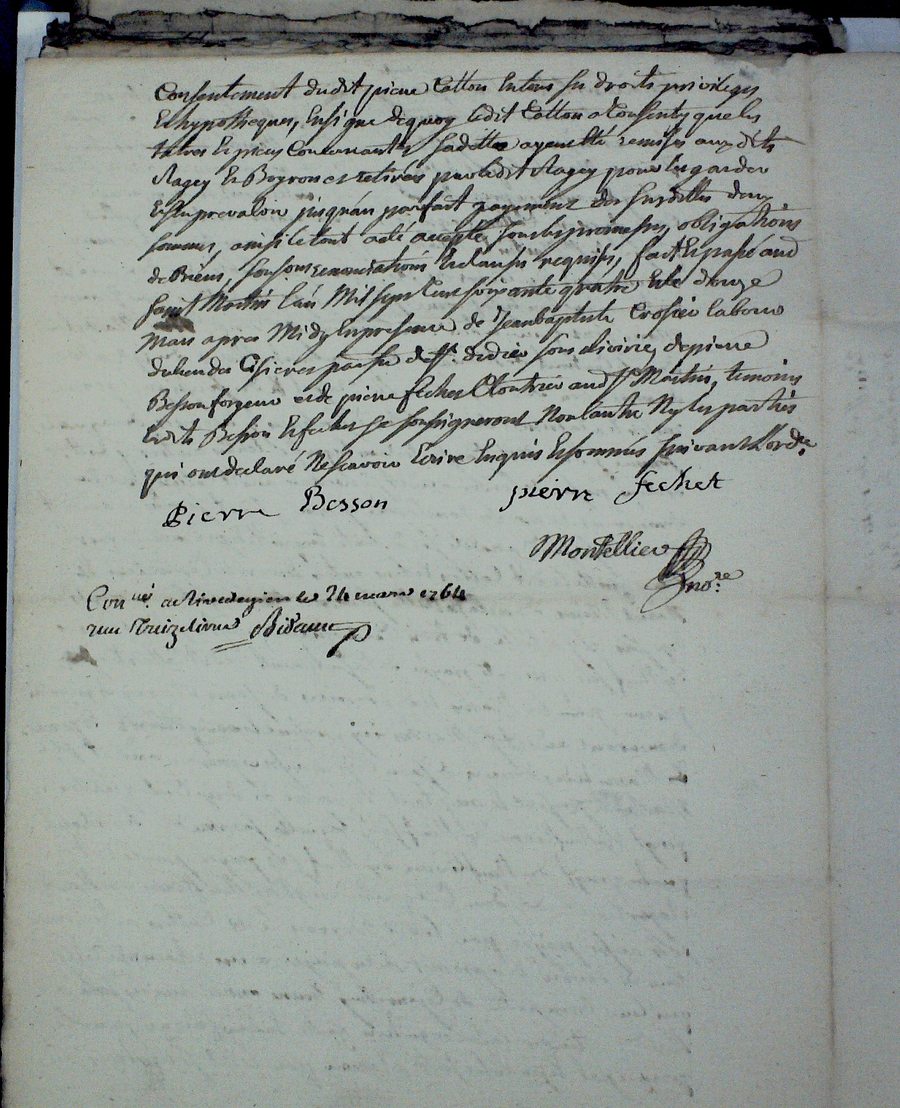 Consentement dudit pierre Catton en tous ses droits privileges
Et hypotheques, En signe de quoy ledit Catton a Consenty que les
titres Et pieces Concernants ayent été remises aux dits
Ragey Et Boyron et retirées par ledit Ragey pour les garder
Et sen prevaloir jusqu'au parfait payement des susdittes deux
sommes, ainsi le tout a été accepté sous les promesses, obligations
de Biens, soumissions renonciations Et clauses requises, fait Et passé aud
saint Martin l'an Mil sept Cent soixante quatre Et le douze
Mars apres Midy En presence de Jean baptiste Crosier laboureur
du lieu des parsse de St. didier sous riverie, de pierre
Besson forgeur et de pierre fechet Cloutrier aud St. Martin, temoins
Lesdits Besson Et fechet se soussigneront Non lautre Ny les parties
qui ont declaré Ne scavoir Ecrire Enquis Et sommés suivant L'ord.ce
Pierre Besson pierre fechet
Montellier
no.re
Con.llé. a Rivedegier le 24 mars 1764
reçu Treize livres Bidaud